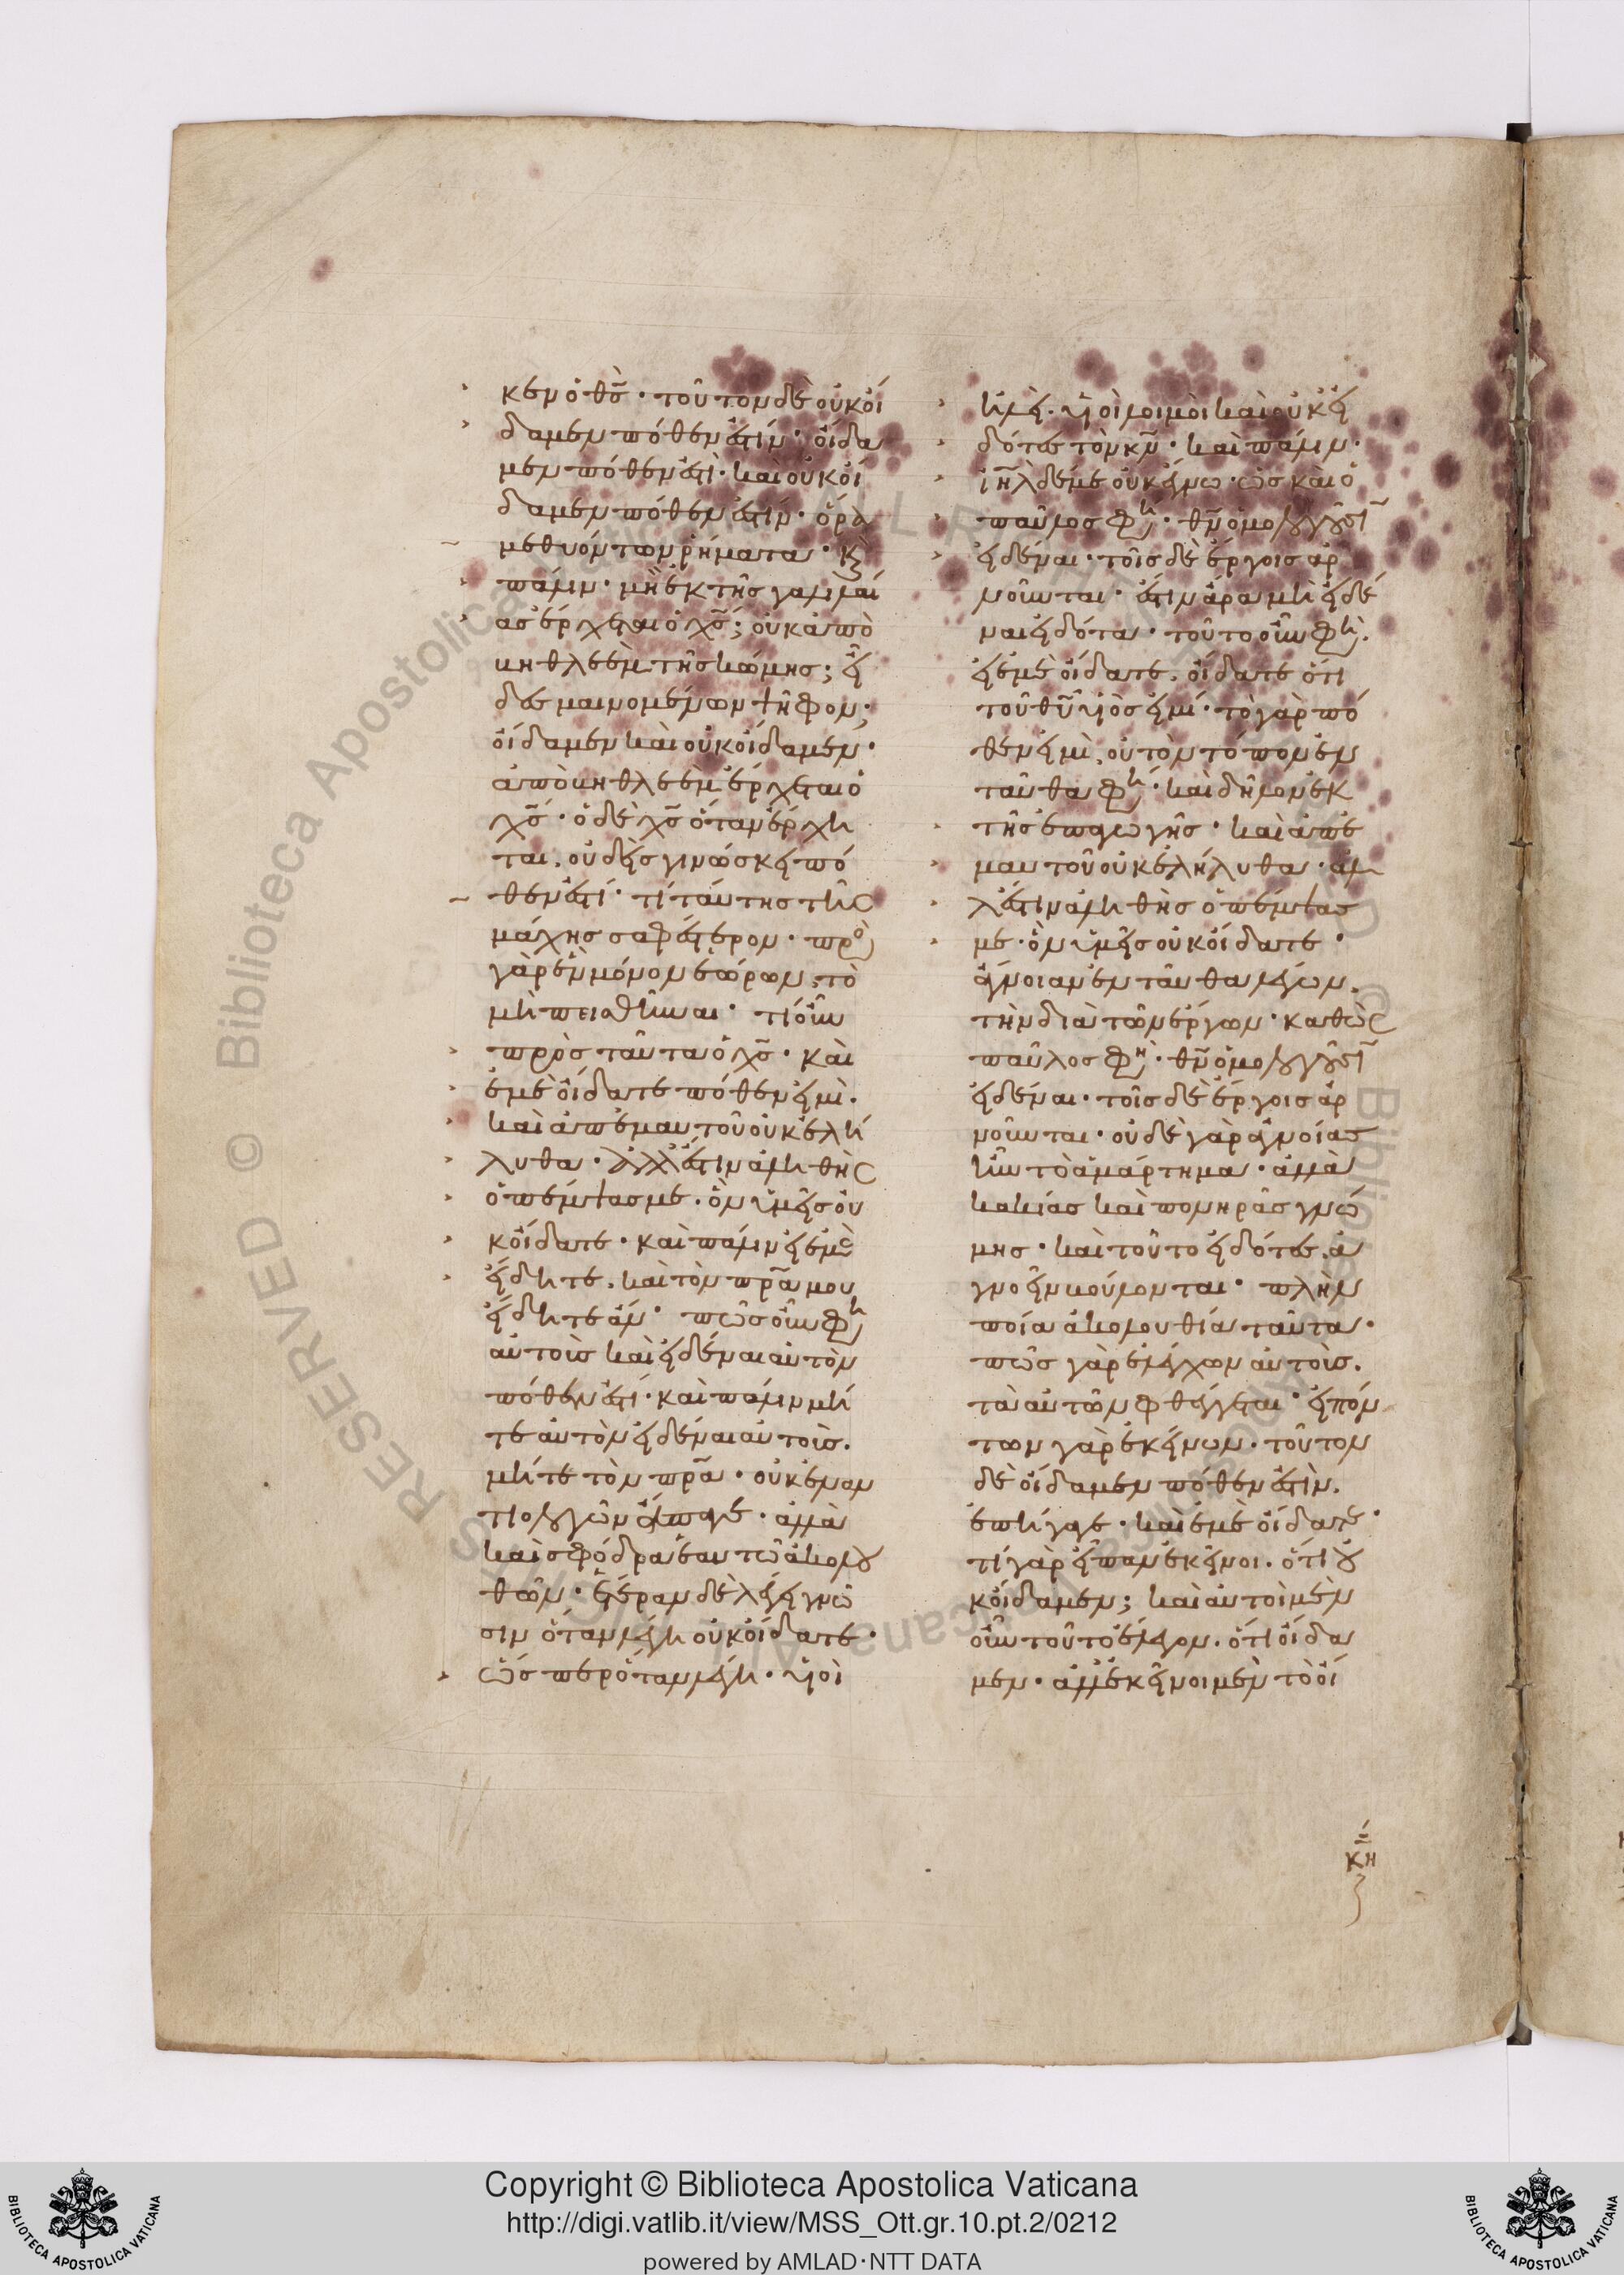 κεν ὁ θσ̅· τοῦτον δὲ οὐκ οἴ
δαμεν πόθεν ἐστίν· οἴδα
μεν πόθεν ἐστί· καὶ οὐκ οἴ
δαμεν πόθεν ἐστίν· ὅρα
μεθυόντων ῥήματα· κ(αὶ)
πάλιν· μὴ ἐκ τῆς γαλιλαί
ασ ἔρχεται ὁ χσ̅; οὐκ ἀπὸ
βηθλεὲμ τῆς κώμης; εἶ
δες μαινομένων ψῆφον;
οἴδαμεν καὶ οὐκ οἴδαμεν·
ἀπὸ βηθλεὲμ ἔρχεται ὁ
χσ̅· ὁ δὲ χσ̅ ὅταν ἔρχη
ται, οὐδεὶς γινώσκει πό
θεν ἐστί· τί ταύτης τῆς
μάχης σαφέστερον· πρὸς
γὰρ ἓν μόνον ἑώρων, τὸ
μὴ πεισθῆναι· τί οὖν
πρὸς ταῦτα ὁ χσ̅· καὶ
ἐμὲ οἴδατε πόθεν εἰμί·
καὶ ἀπ' ἐμαυτοῦ οὐκ ἐλή
λυθα· ἀλλ' ἔστιν ἀληθὴς
ὁ πέμψας με· ὃν ὑμεῖς οὐ
κ οἴδατε· καὶ πάλιν εἰ ἐμὲ
ᾔδητε, καὶ τὸν πρ̅α μου
ᾔδητε ἄν· πῶς οὖν φη(σὶν)
αὐτοὺς καὶ εἰδέναι αὐτὸν
πόθεν ἐστί· καὶ πάλιν μή
τε αὐτὸν εἰδέναι αὐτοὺς.
μήτε τὸν πρ̅α· οὐκ ἐναν
τιολογῶν ἄπαγε· ἀλλὰ
καὶ σφόδρα ἑαυτῷ ἀκολου
θῶν· ἑτέραν δὲ λέγει γνῶ
σιν ὅταν λέγη οὐκ οἴδατε·
ὥσπερ ὅταν λέγη· υἱοὶ
ἠλεί· υἱοὶ λοιμοὶ καὶ οὐκ εἰ
δότες τὸν κν̅· καὶ πάλιν·
ιη̅λ δέ με οὐκ ἔγνω· ὡς καὶ ὁ
παῦλος φη(σί)· θν̅ ὁμολογοῦσι
εἰδέναι· τοῖς δὲ ἔργοις ἀρ
νοῦνται· ἔστιν ἄρα μὴ εἰδέ
ναι εἰδότα· τοῦτο οὖν φη(σί).
εἰ ἐμὲ οἴδατε, οἴδατε ὅτι
τοῦ θυ̅ υἱός εἰμι· τὸ γὰρ πό
θεν εἰμὶ, οὐ τὸν τόπον ἐν
ταῦθα φη(σί)· καὶ δῆλον ἐκ
τῆς ἐπαγωγῆς· καὶ ἀπ' ἐ
μαυτοῦ οὐκ ἐλήλυθα· ἀλ
λ' ἔστιν ἀληθὴς ὁ πέμψας
με· ὃν ὑμεῖς οὐκ οἴδατε·
ἄγνοιαν ἐνταῦθα λέγων,
τὴν διὰ τῶν ἔργων· καθὼς
παῦλος φη(σί)· θν̅ ὁμολογοῦσι
εἰδέναι· τοῖς δὲ ἔργοις ἀρ
νοῦνται· οὐδὲ γὰρ ἀγνοίας
ἦν τὸ ἁμάρτημα· ἀλλὰ
κακίας καὶ πονηρᾶς γνώ
μης· καὶ τοῦτο εἰδότες, ἀ
γνοεῖν βούλονται· πλὴν
ποία ἀκολουθία ταῦτα·
πῶς γὰρ ἐλέγχων αὐτοὺς.
τὰ αὐτῶν φθέγγεται· εἰπόν
των γὰρ ἐκείνων· τοῦτον
δὲ οἴδαμεν πόθεν ἐστίν.
ἐπήγαγε· καὶ ἐμὲ οἴδατε·
τί γὰρ εἶπαν ἐκεῖνοι. ὅτι οὐ
κ οἴδαμεν; καὶ αὐτοὶ μὲν
οὖν τοῦτο ἔλεγον. ὅτι οἴδα
μεν· ἀλλ' ἐκεῖνοι μὲν τὸ οἴ
κη
Copyright © Biblioteca Apostolica Vaticana
http://digi.vatlib.it/view/MSS_Ott.gr.10.pt.2/0212
powered by AMLAD·NTT DATA